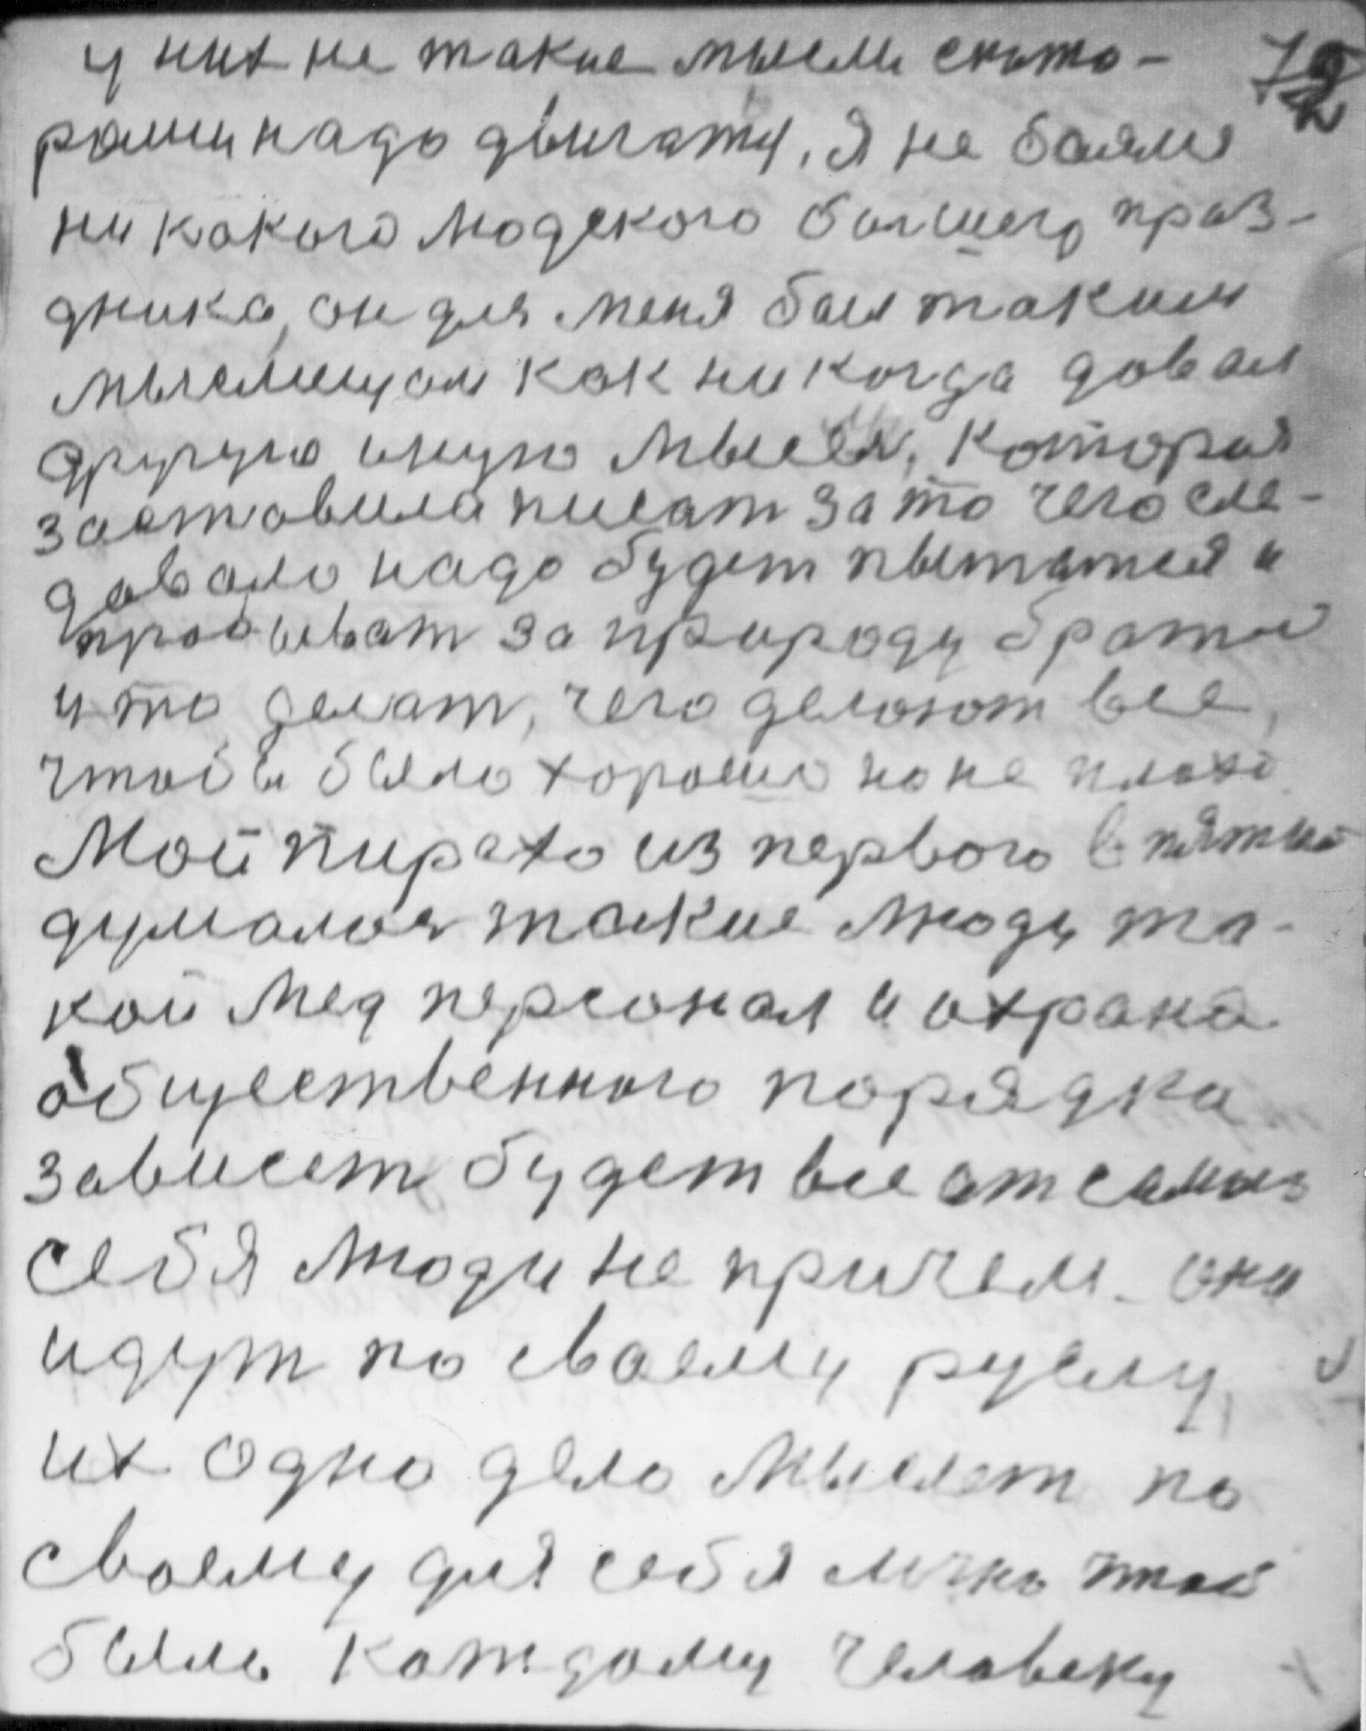 у них не такие мысли ското-
рыми надо двигать, я не боялся
ни какого людского болшего праз-
дника, он для меня был таким
мыслищом как ни когда давал
другую иную мысля, которая
заставила писат за то чего сле-
довало надо будет пытатся и
пробыват за природу братся
и то делат, чего делают все,
чтобы было хорошо но не плохо
Мой пирехо из первого в пятый
думалося такие люди та-
кой мед персонал и охрана
общественного порядка
зависет будет все от самих
себя люди не причем. они
идут по своему руслу,
их одно дело мыслет по
своему для себя лично чтоб
было каждому человеку